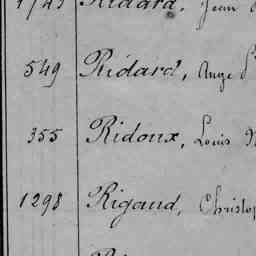 1743 Ridard, Jean
549 Ridard, Ange
355 Ridoux, Louis
1298 Rigaud, Christop